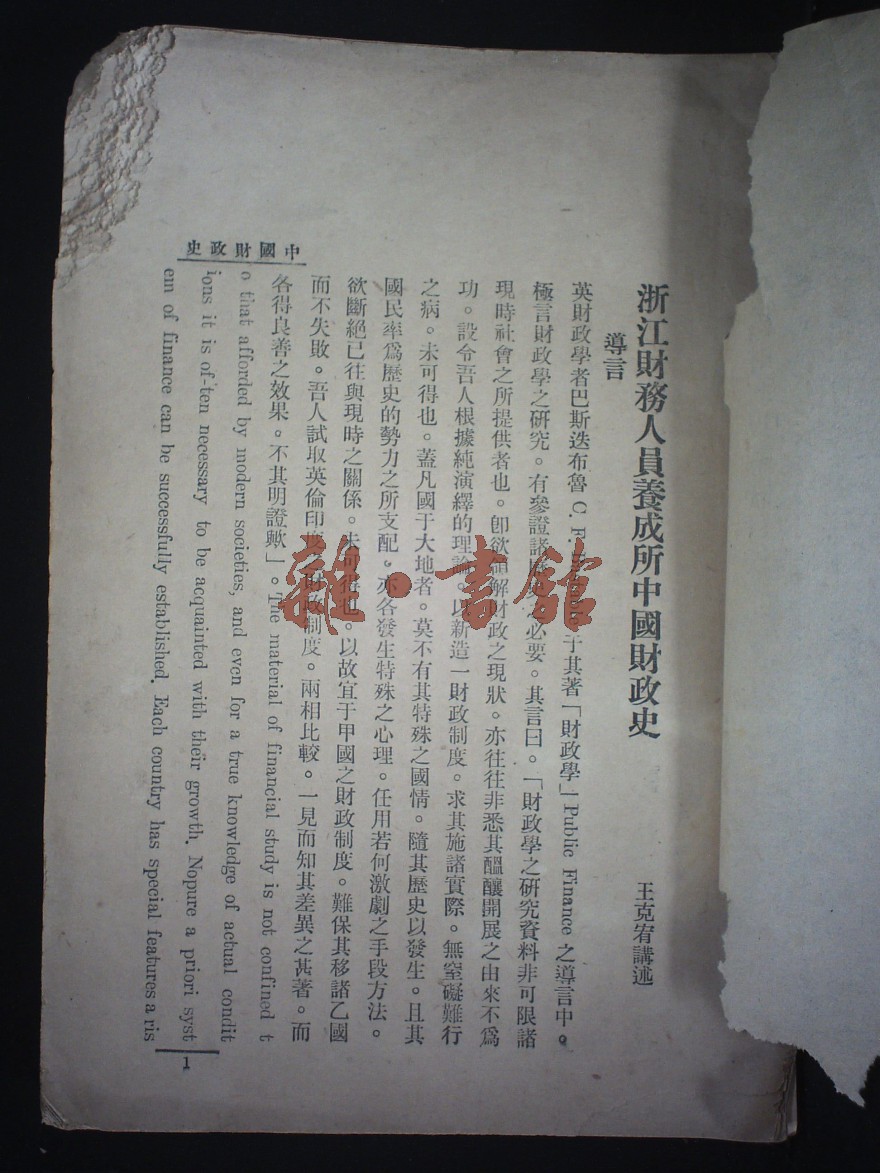 浙江財務人員養成所中國財政史
王克宥講述
導言
英財政學者巴斯迭布魯 C. F. 于其著「財政學」Public Finance 之導言中。
極言財政學之研究。有參證諸歷史之必要。其言曰。「財政學之研究資料非可限諸
現時社會之所提供者也。卽欲領解財政之現狀。亦往往非悉其醞釀開展之由來不爲
功。設令吾人根據純演繹的理論。以新造一財政制度。求其施諸實際。無窒礙難行
之病。未可得也。蓋凡國于大地者。莫不有其特殊之國情。隨其歷史以發生。且其
國民率爲歷史的勢力之所支配。亦各發生特殊之心理。任用若何激劇之手段方法。
欲斷絕已往與現時之關係。未可得也。以故宜于甲國之財政制度。難保其移諸乙國
而不失敗。吾人試取英倫印度之財政制度。兩相比較。一見而知其差異之甚著。而
各得良善之效果。不其明證歟」。The material of financial study is not confined t
o that afforded by modern societies, and even for a true knowledge of actual condit
ions it is of-ten necessary to be acquainted with their growth. Nopure a priori syst
em of finance can be successfully established. Each country has special features a ris
中國財政史
1
雜·書館